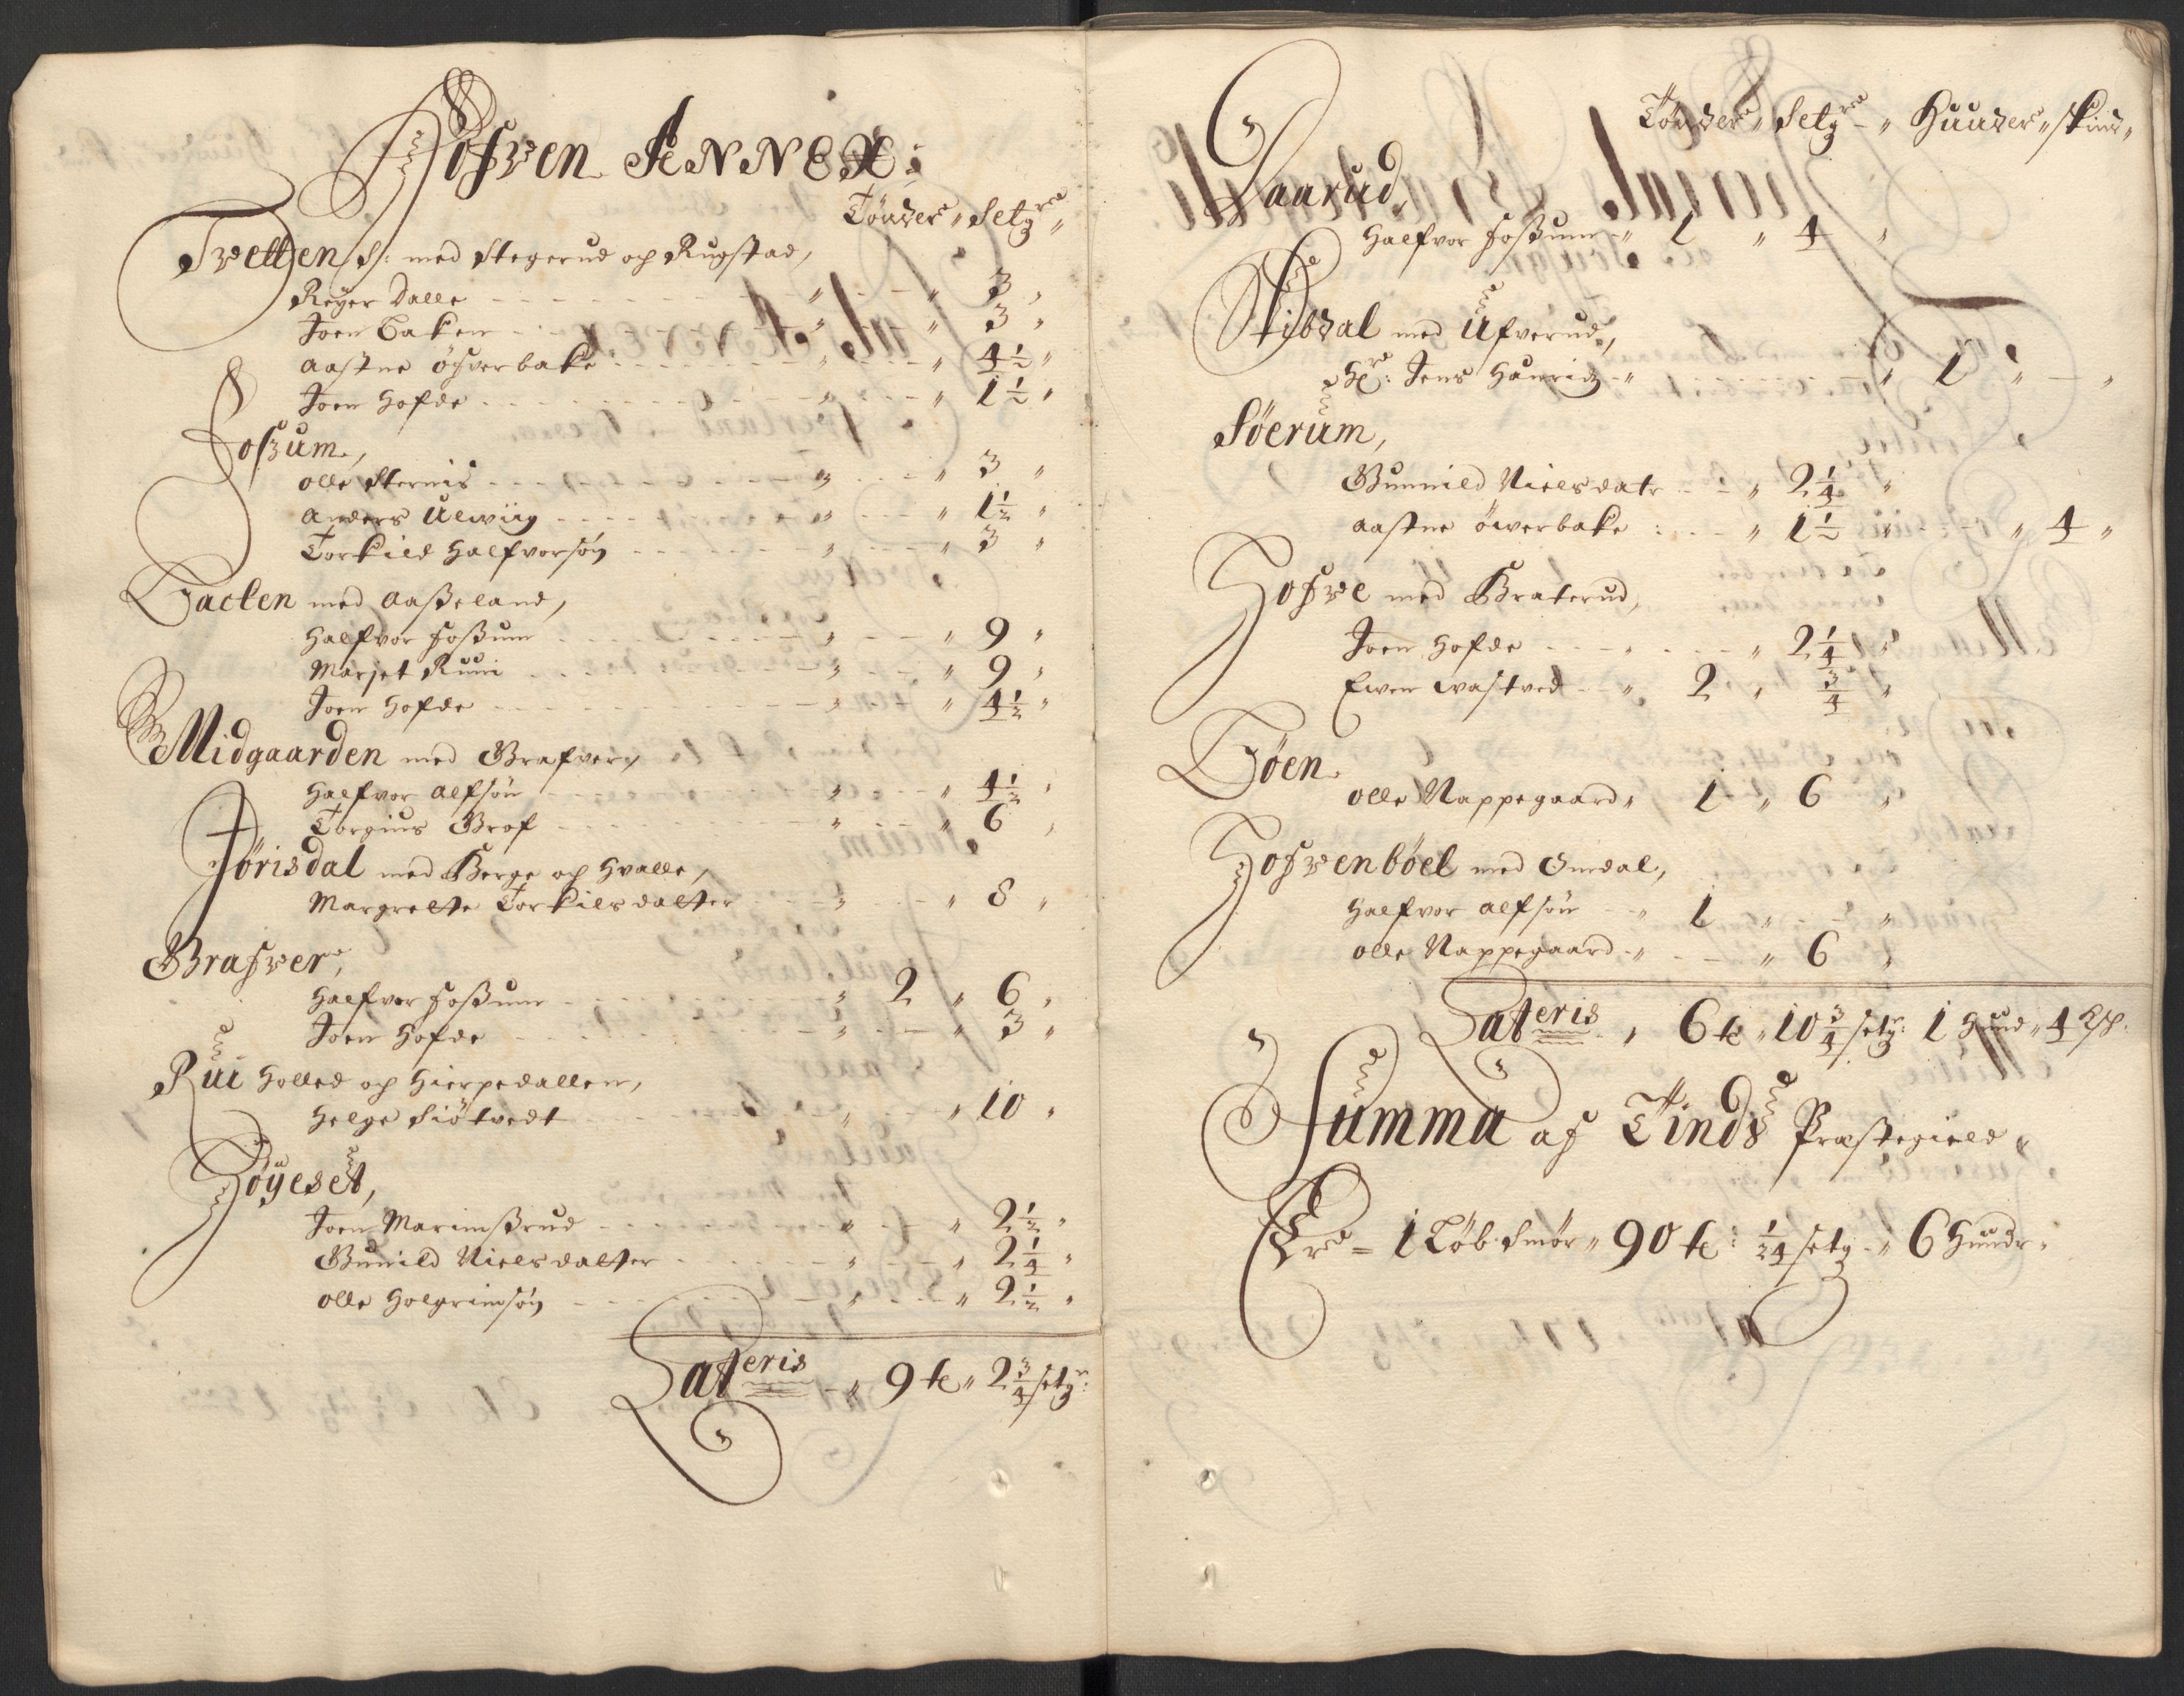 Hofven Annex:
Tønder " Setgr "
Tvetten S: med Stegerud och Rugstad,
Reyer Dalle - - - " - - " 3 "
Joen Baken - - - " - - " 3 "
Aastne Öfverbake - - - " - - " 4½ "
Joen Hofde - - - " - - " 1½ "
Fossum,
Olle Sternis - - - " - - " 3 "
Anders Ulwiig - - - " - - " 1½ "
Torkild Halfvorsøn - - - " - - " 3 "
Baclen med Aasseland,
Halfvor Fossum - - - " - - " 9 "
Marjet Ruui - - - " - - " 9 "
Joen Hofde - - - " - - " 4½ "
Midgaarden med Grafver,
Halfvor Alfsøn - - - " - - " 4½ "
Torgiuus Grof - - - " - - " 6 "
Jørisdal med Berge och Hvalle,
Margrette Torkilsdatter - - - " - - " 8 "
Grafver,
Halfvor Fossum - - - " 2 " 6 "
Joen Hofde - - - " - - " 3 "
Rui Holled och Hierpedallen,
Helge Siøtvedt - - - " - - " 10 "
Høyeset,
Joen Marumsrud - - - " - - " 2½ "
Gunild Nielsdatter - - - " - - " 2¼ "
Olle Holgrimsøn - - - " - - " 2½ "
Lateris - " 9 tr " 2¾ setgr:
Tønder " Setgr - " Huuder " skind "
Haarud,
Halfvor Fossum - " 1 " 4 "
Stibdal med Ufverud,
Hr: Jens Hanrig - " - - " 1 " - "
Søerum,
Gunnild Nielsdatr - - " 2¼ "
Aastne Öwerbake : - - " 1½ - - " 4 "
Hofve med Braterud,
Joen Hofde - - " - - " 2¼ "
Ewen Wastved - " 2 " ¾ "
Bøen
Olle Nappegaard " 1 " 6 "
Hofvenbøel med Omdal,
Halfvor Alfsøn - " 1 " - - "
Olle Nappegaard - " - - " 6 "
Lateris " 6 tr " 10¾ setgr: 1 Huud " 4 sch:
Summa af Tinds Præstegield
Er = 1 Løb Smør " 90 tr: 1/24 setg - " 6 Huudr "